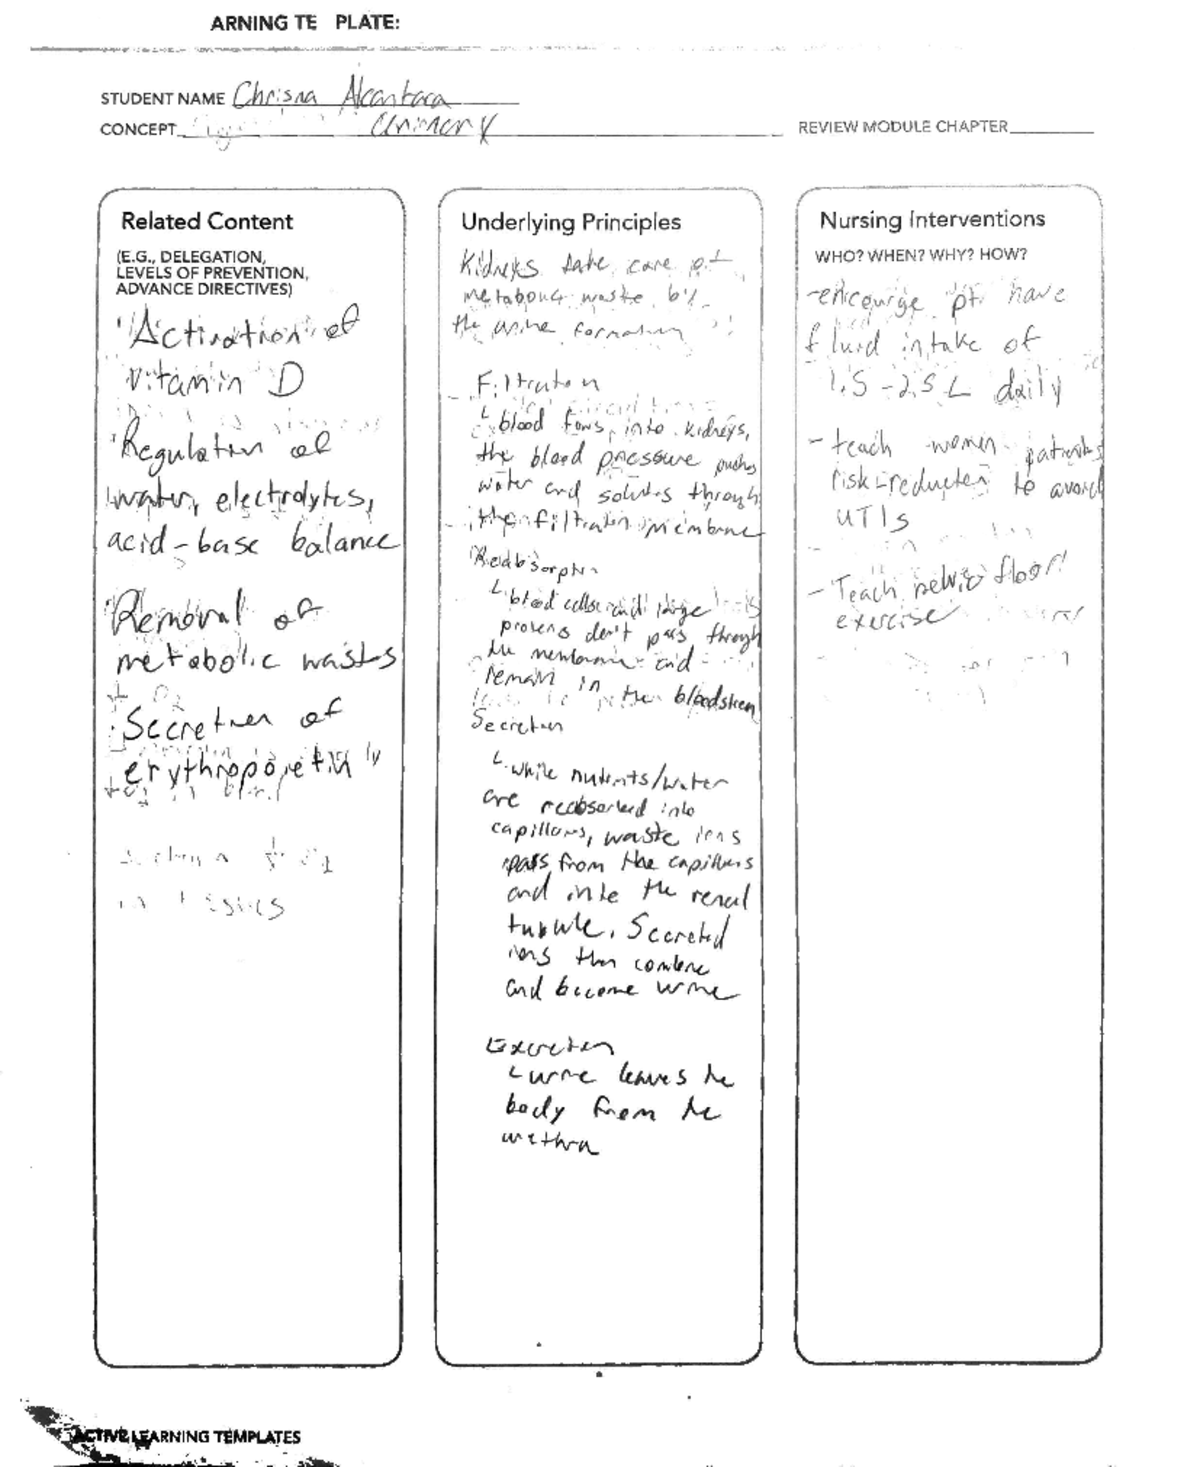 ARNING TE PLATE:
STUDENT NAME Chrisna Alcantara
CONCEPT
REVIEW MODULE CHAPTER
Related Content
(E.G., DELEGATION,
LEVELS OF PREVENTION,
ADVANCE DIRECTIVES)
Activation of
vitamin D
Regulation of
water, electrolytes,
acid-base balance
Removal of
metabolic wastes
Secretion of
erythropoietin
Underlying Principles
Kidneys take care of
metabolic waste by
the urine formation
Filtration
blood flows into kidneys,
the blood pressure pushes
water and solutes through
the filtration membrane
Reabsorption
blood cells and large
proteins don't pass through
the membrane and
remain in the bloodstream
Secretion
while nutrients/water
are reabsorbed into
capillaries, waste ions
pass from the capillaries
and into the renal
tubule. Secreted
ions then combine
and become urine
Excretion
urine leaves the
body from the
urethra
Nursing Interventions
WHO? WHEN? WHY? HOW?
-encourge pt have
fluid intake of
1.5-2.5 L daily
- teach women patients
risk-reduction to avoid
UTIs
- Teach pelvic floor
exercise
ACTIVE LEARNING TEMPLATES